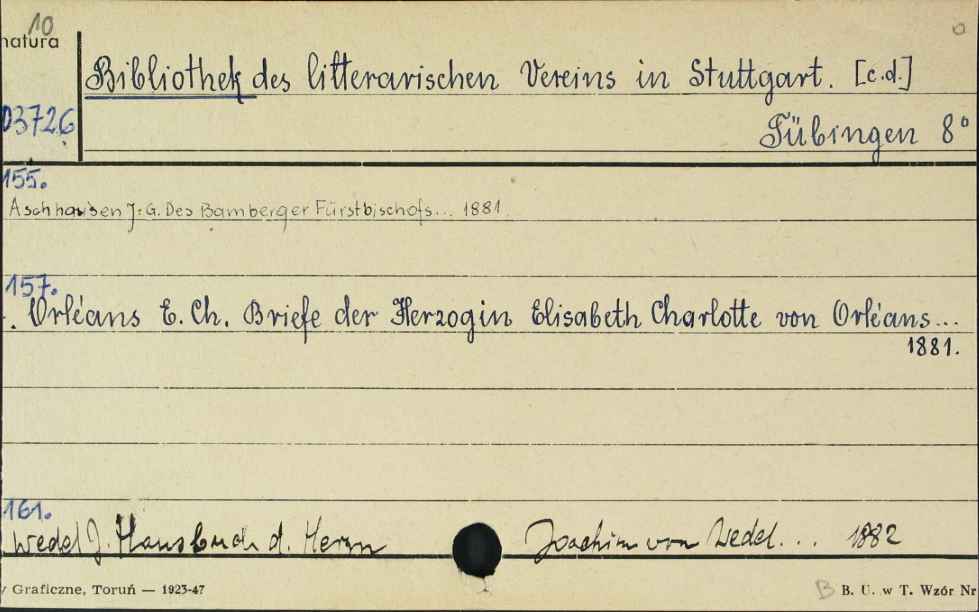 10
natura
Bibliothek des litterarischen Vereins in Stuttgart. [c.d.]
03726
Tübingen 8°
155.
Aschhausen J: G. Des Bamberger Fürstbischofs... 1881.
157.
Orléans E. Ch. Briefe der Herzogin Elisabeth Charlotte von Orléans...
1881.
161.
Wedel J. Hausbuch d. Herrn Joachim von Wedel... 1882
y Graficzne, Toruń — 1923-47
B B. U. w T. Wzór Nr